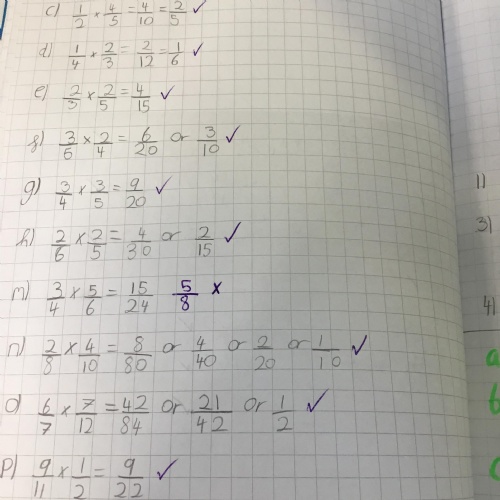 c) 1/2 × 4/5 = 4/10 = 2/5 ✓
d) 1/4 × 2/3 = 2/12 = 1/6 ✓
e) 2/3 × 2/5 = 4/15 ✓
f) 3/5 × 2/4 = 6/20 or 3/10 ✓
g) 3/4 × 3/5 = 9/20 ✓
h) 2/6 × 2/5 = 4/30 or 2/15 ✓
m) 3/4 × 5/6 = 15/24 5/8 x
n) 2/8 × 4/10 = 8/80 or 4/40 or 2/20 or 1/10 ✓
o) 6/7 × 7/12 = 42/84 or 21/42 or 1/2 ✓
p) 9/11 × 1/2 = 9/22 ✓
1)
3)
4)
a